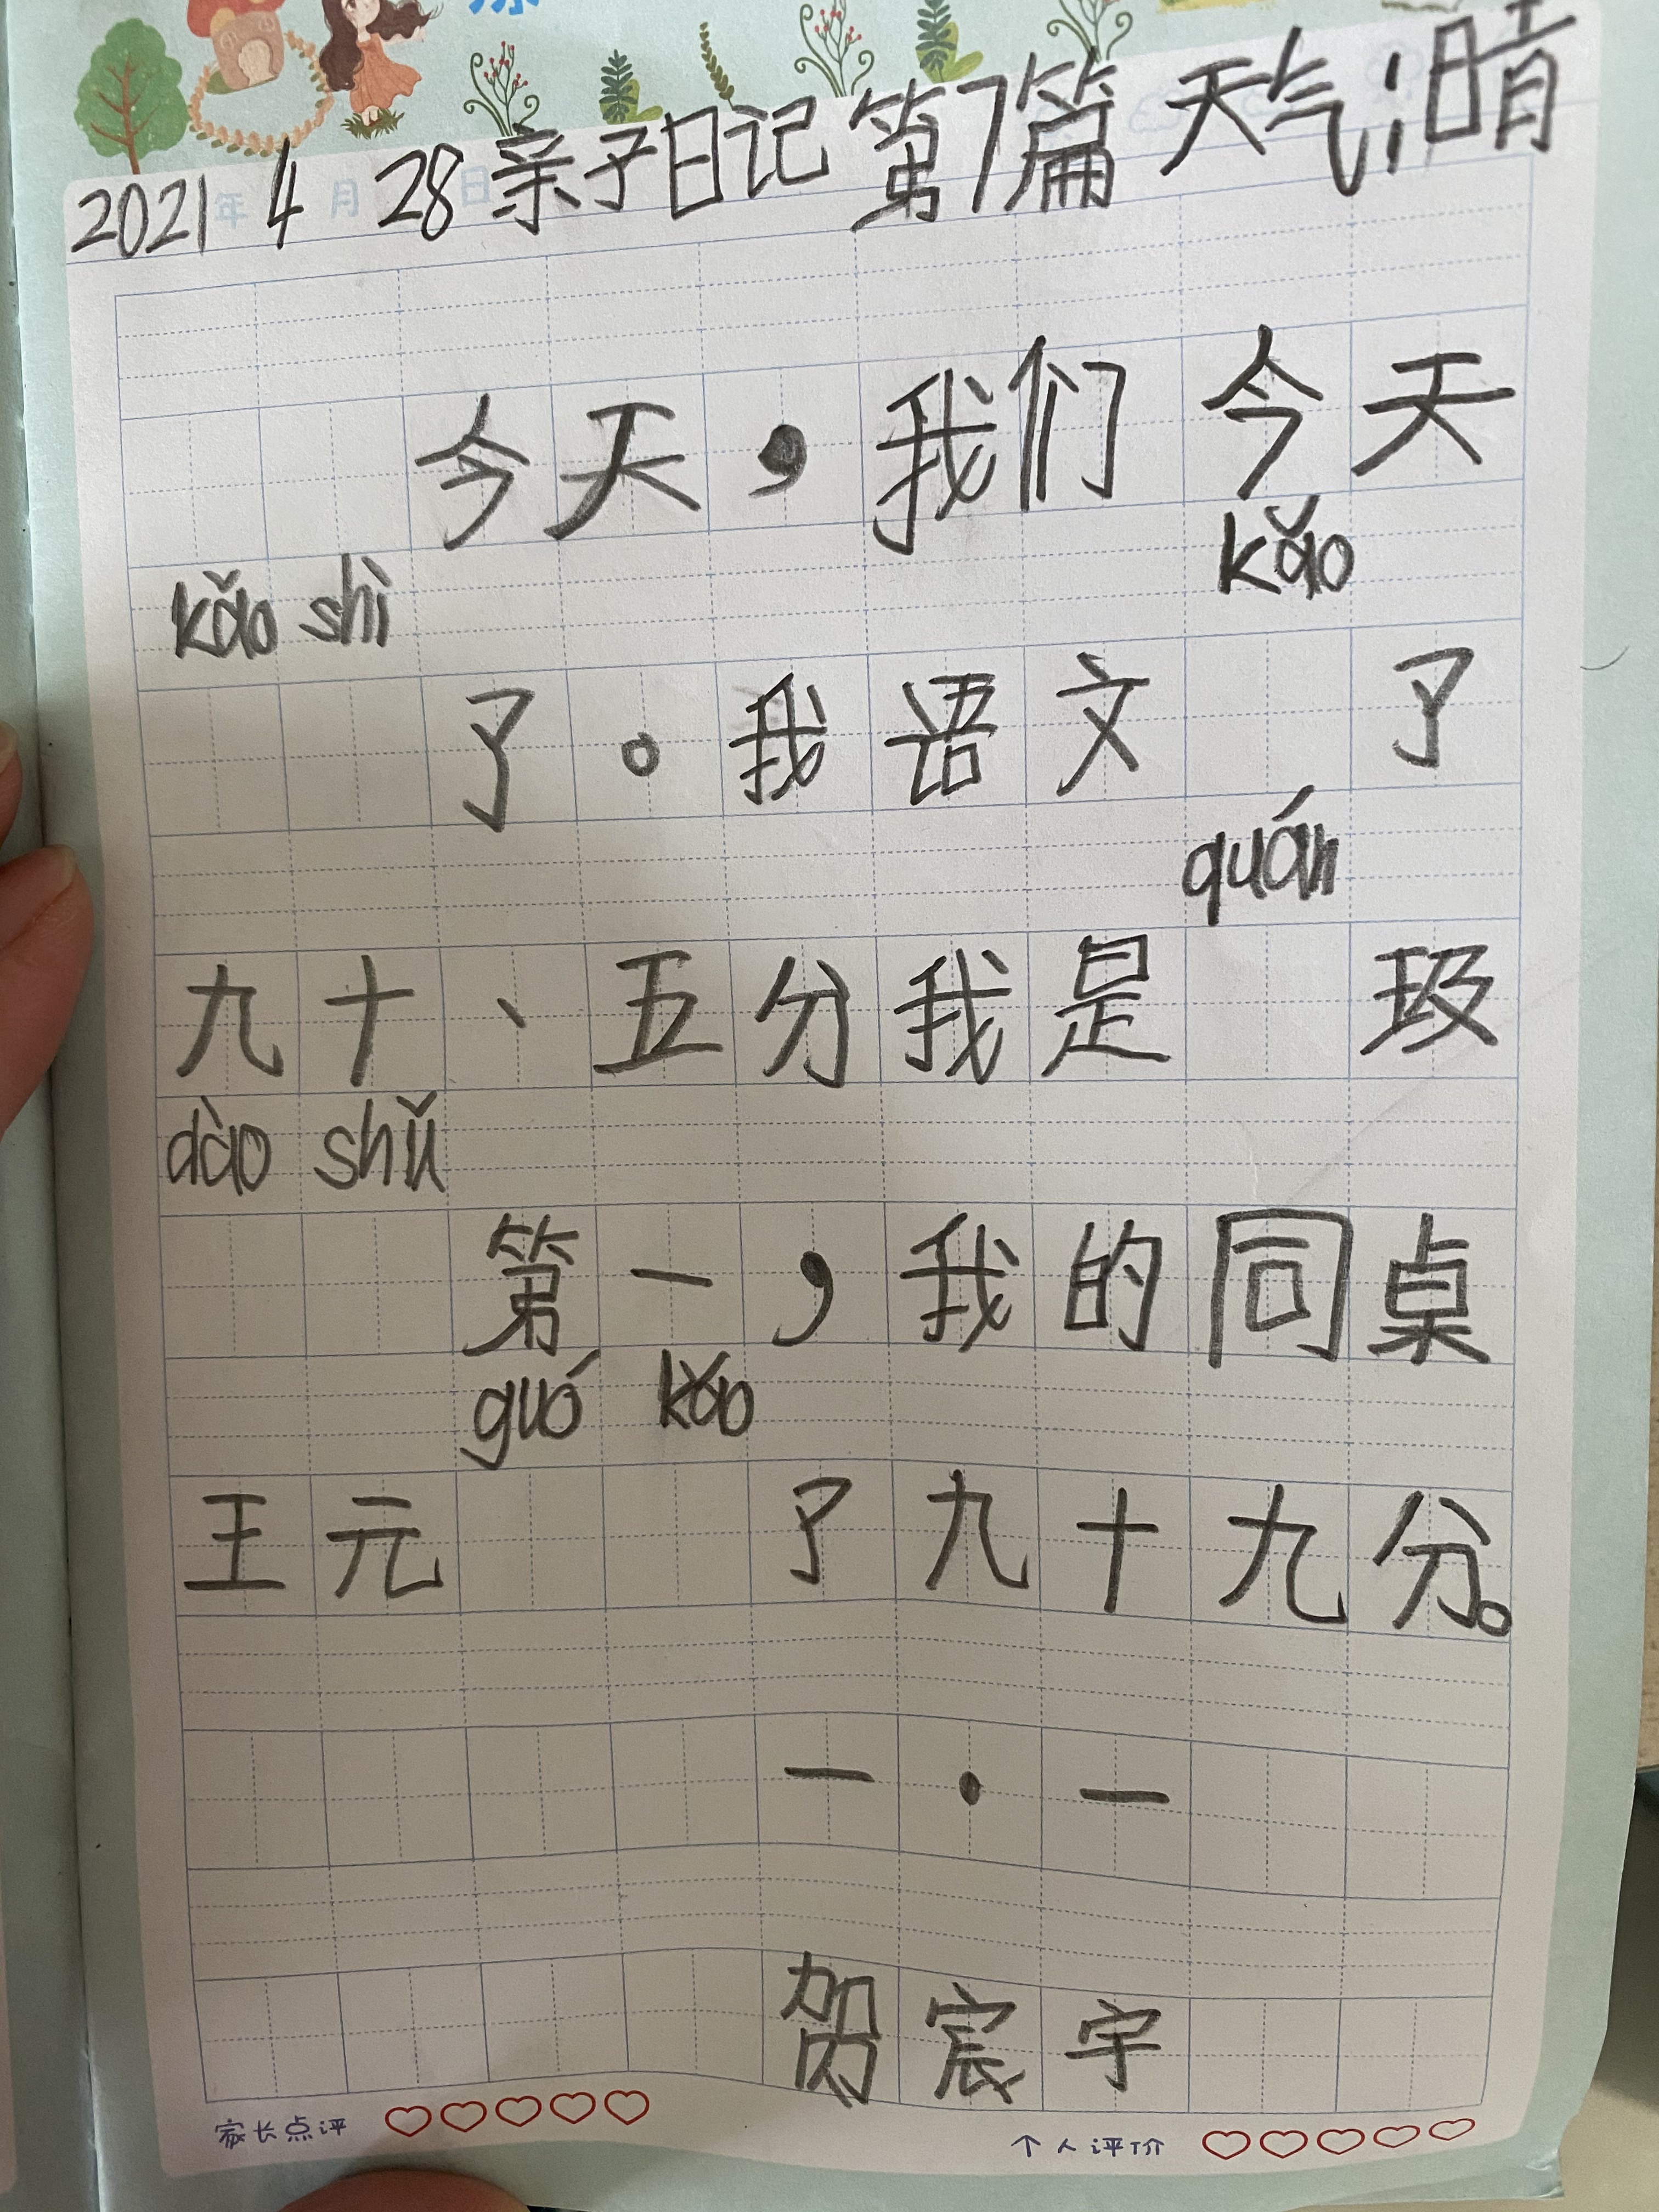 2021年 4月 28日 亲子日记 第7篇 天气:晴
今天,我们今天
kǎo shì kǎo
了。我语文 了
quán
九十、五分我是
dào shǔ
第一,我的同桌
guó kǎo
王元 了九十九分。
一·一
贺宸宇
家长点评
个人评价